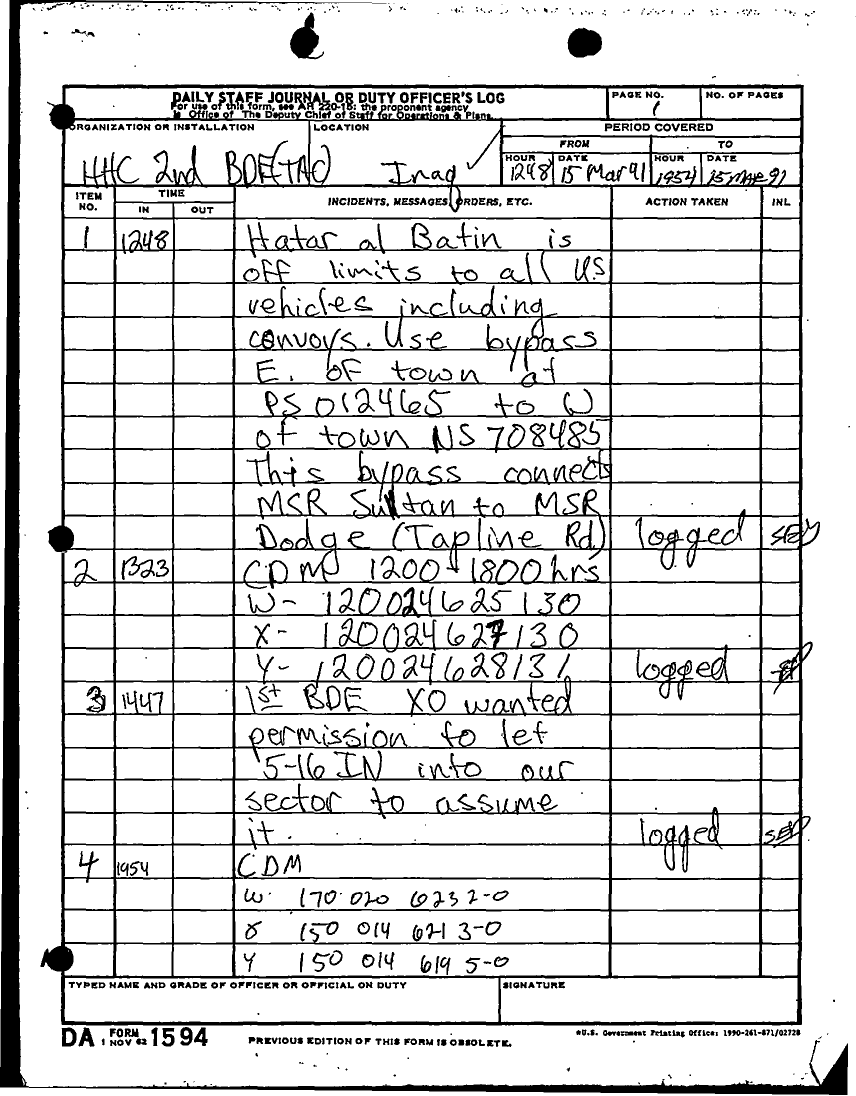 DAILY STAFF JOURNAL OR DUTY OFFICER'S LOG
For use of this form, see AR 220-15: the proponent agency
is Office of The Deputy Chief of Staff for Operations & Plans.
PAGE NO.
1
NO. OF PAGES
ORGANIZATION OR INSTALLATION
HHC 2nd BDE (TAC)
LOCATION
Iraq
PERIOD COVERED
FROM
TO
HOUR DATE HOUR DATE
1248 15 Mar 91 1954 15 MAR 91
ITEM NO.
TIME
IN OUT
INCIDENTS, MESSAGES, ORDERS, ETC.
ACTION TAKEN
INL
1 1248 Hatar al Batin is
off limits to all US
vehicles including
convoys. Use bypass
E. of town at
PS 012465 to W
of town NS 708485
This bypass connects
MSR Sultan to MSR
Dodge (Tapline Rd) logged
2 1323 CDM 1200-1800 hrs
W- 120024625130
X- 120024627130
Y- 120024628131 logged
3 1447 1st BDE XO wanted
permission to let
5-16 IN into our
sector to assume
it. logged
4 1954 CDM
W 170 020 623 2-0
X 150 014 621 3-0
Y 150 014 619 5-0
TYPED NAME AND GRADE OF OFFICER OR OFFICIAL ON DUTY
SIGNATURE
DA FORM 1 NOV 62 1594
PREVIOUS EDITION OF THIS FORM IS OBSOLETE.
*U.S. Government Printing Office: 1990-261-871/02728